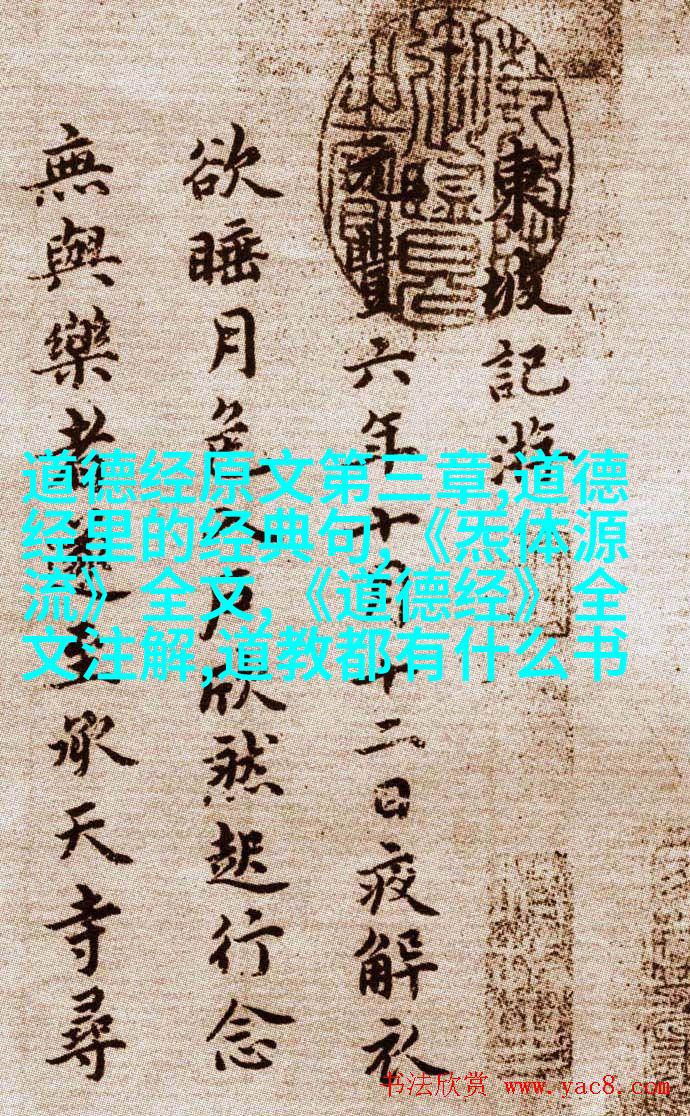 東坡記游
元豐六年十月十二日夜解衣
欲睡月色入戶欣然起行念
無與樂者遂至承天寺尋
道德经原文第三章,道德
经里的经典句,《炁体源
流》全文,《道德经》全
文注解,道教都有什么书
书法欣赏 www.yac8.com